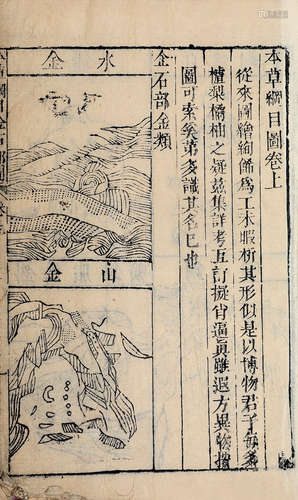 本草綱目圖卷上
從來圖繪絢飾爲工未暇析其形似是以博物君子每多
櫨梨橘柚之疑茲集詳考互訂擬肖逼真雖遐方異物按
圖可索奚第多識其名已也
金石部金類
水金
山金